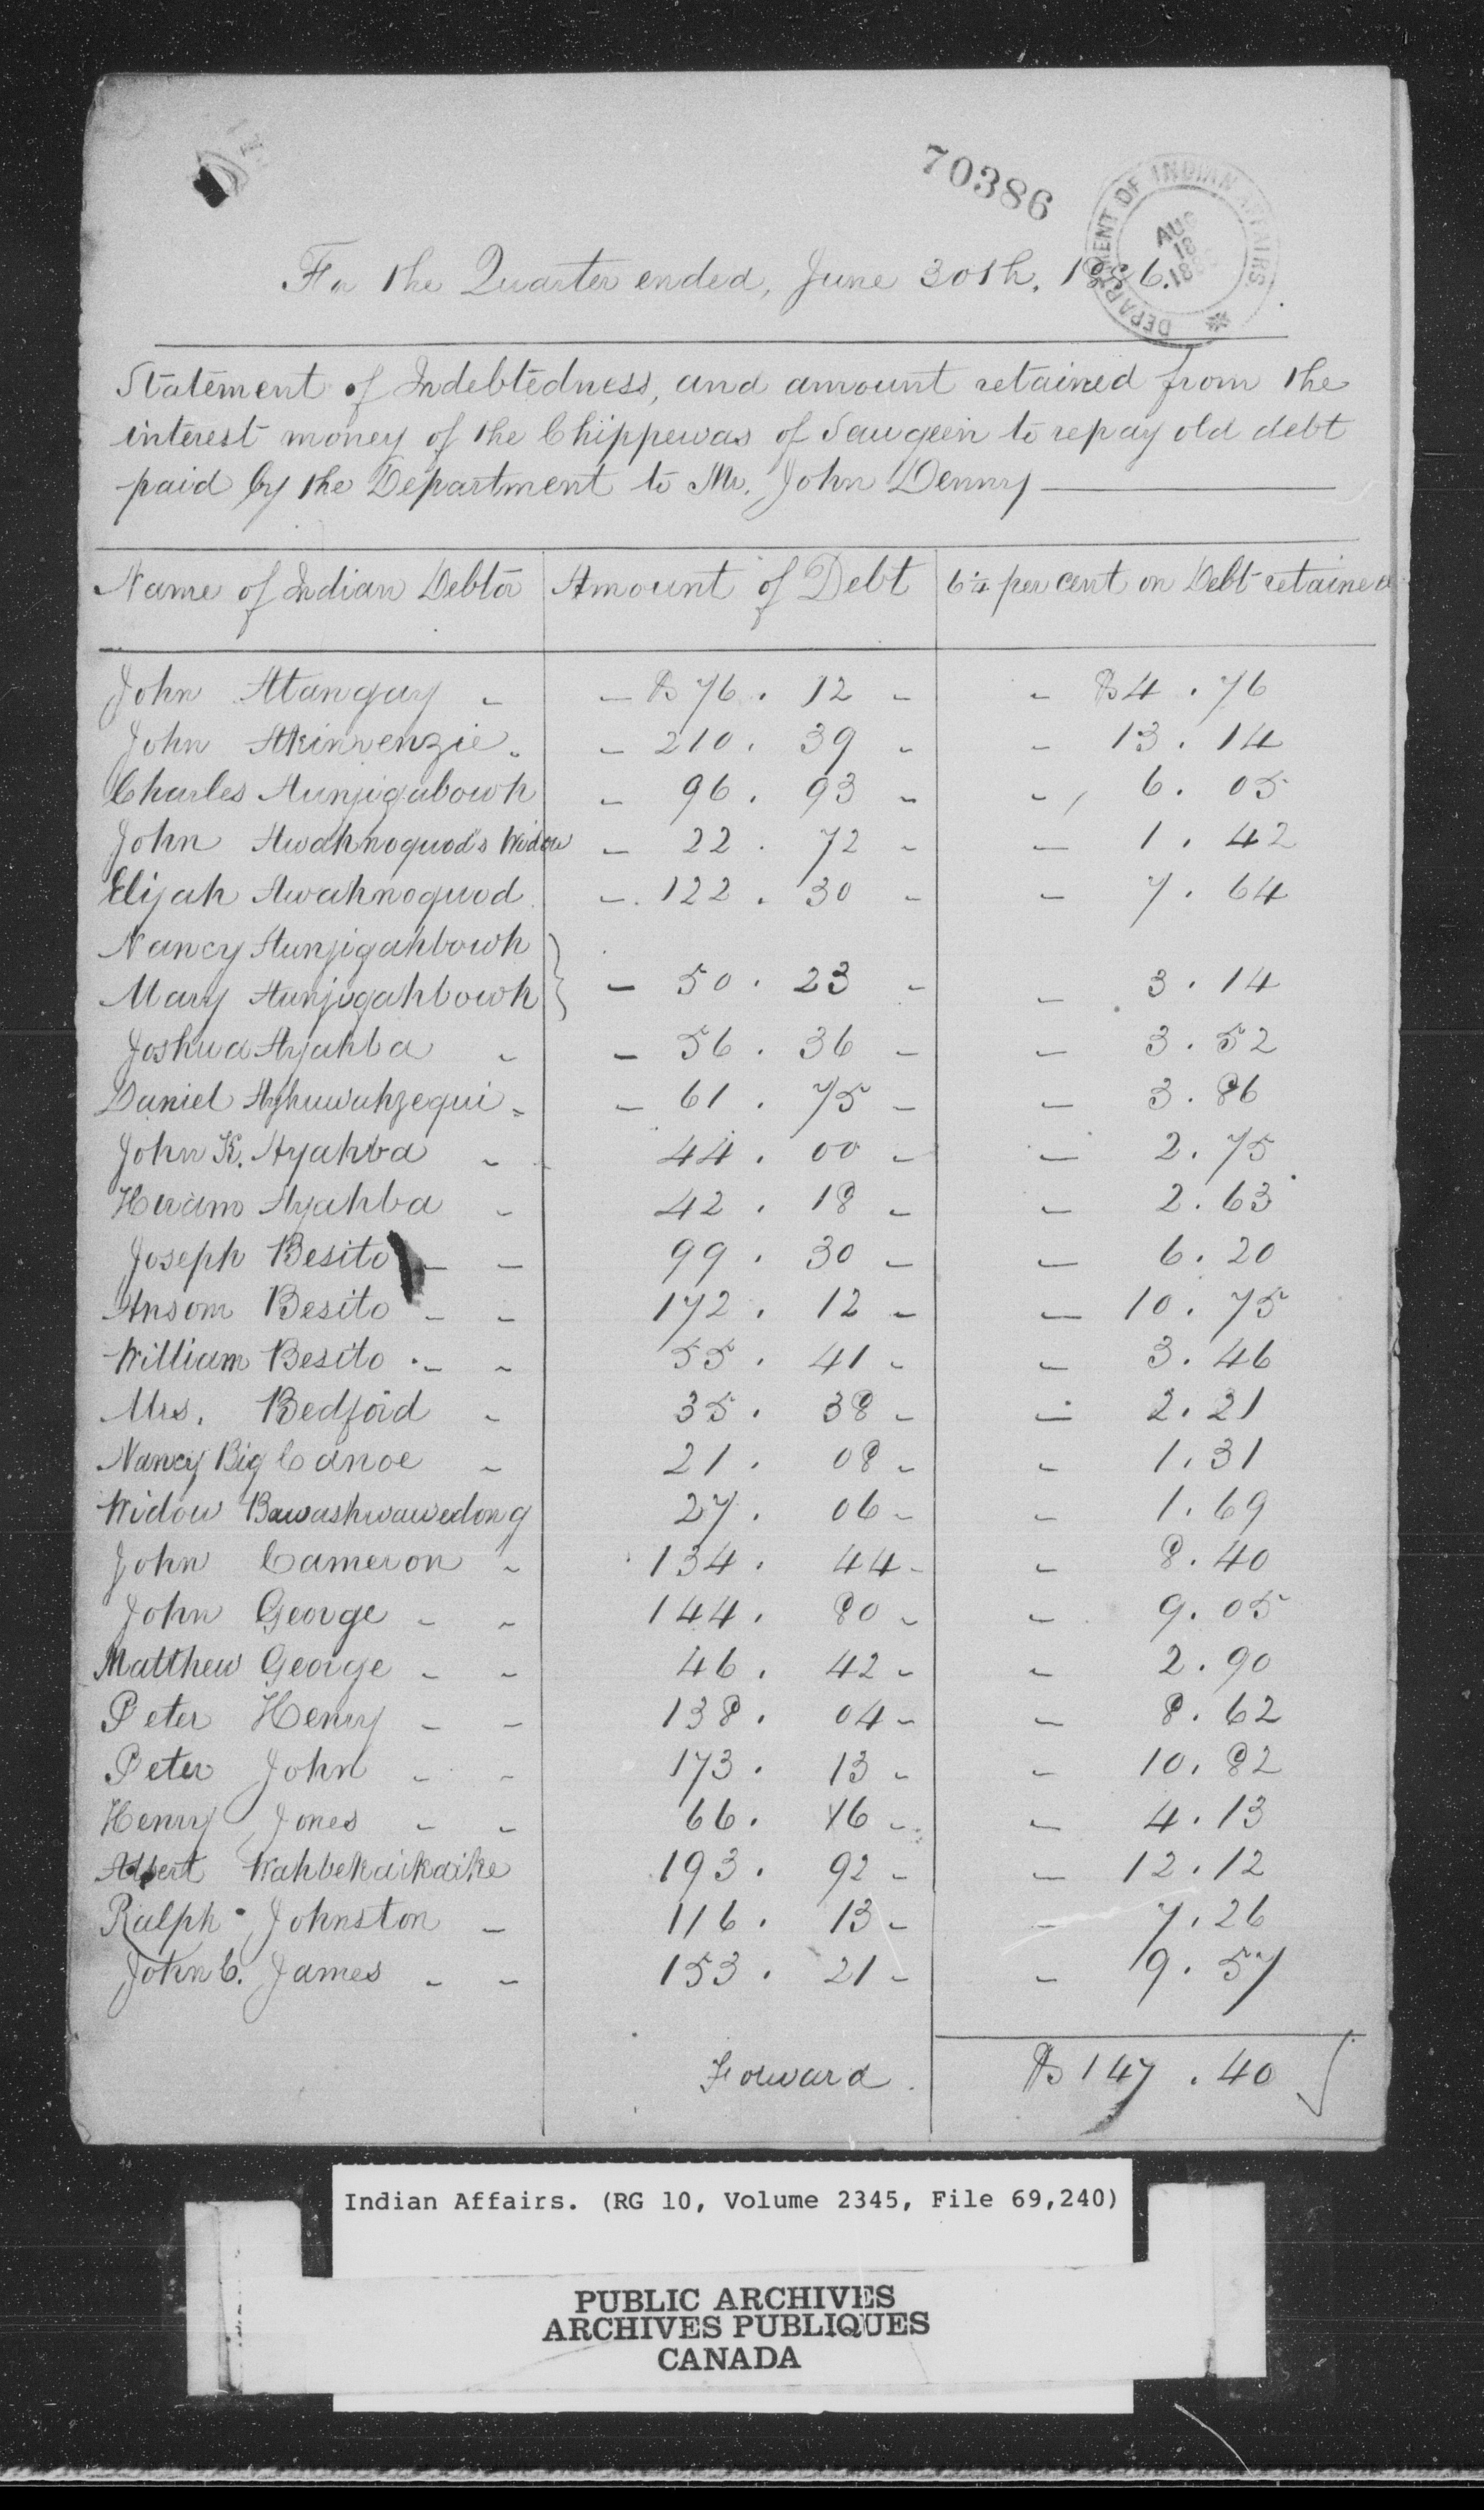 70386
DEPARTMENT OF INDIAN AFFAIRS
AUG
For the Quarter ended, June 30th, 1886.
Statement of Indebtedness, and amount retained from the
interest money of the Chippewas of Saugeen to repay old debt
paid by the Department to Mr. John Denny
Name of Indian Debtor Amount of Debt 6¼ per cent on Debt retained
John Atangay - - $76.12 - - $4.76
John Akinvenzie - - 210.39 - - 13.14
Charles Aunjigabowh - 96.93 - - 6.05
John Awahnoquod's Widow - 22.72 - - 1.42
Elijah Awahnoquod - 122.30 - - 7.64
Nancy Aunjigahbowh
Mary Aunjigahbowh } - 50.23 - - 3.14
Joshua Ayahba - - 56.36 - - 3.52
Daniel - - 61.75 - - 3.86
John K. Ayahba - 44.00 - - 2.75
Hiram Ayahba - 42.18 - - 2.63
Joseph Besito - - 99.30 - - 6.20
Ansom Besito - - 172.12 - - 10.75
William Besito - - 55.41 - - 3.46
Mrs. Bedford - 35.38 - - 2.21
Nancy Big Canoe - 21.08 - - 1.31
Widow Bawashwawedong 27.06 - - 1.69
John Cameron - 134.44 - - 8.40
John George - - 144.80 - - 9.05
Matthew George - - 46.42 - - 2.90
Peter Henry - - 138.04 - - 8.62
Peter John - - 173.13 - - 10.82
Henry Jones - - 66.16 - - 4.13
Albert Wahbekaikaike 193.92 - - 12.12
Ralph Johnston - 116.13 - - 7.26
John C. James - - 153.21 - - 9.57
Forward. $147.40 √
Indian Affairs. (RG 10, Volume 2345, File 69,240)
PUBLIC ARCHIVES
ARCHIVES PUBLIQUES
CANADA